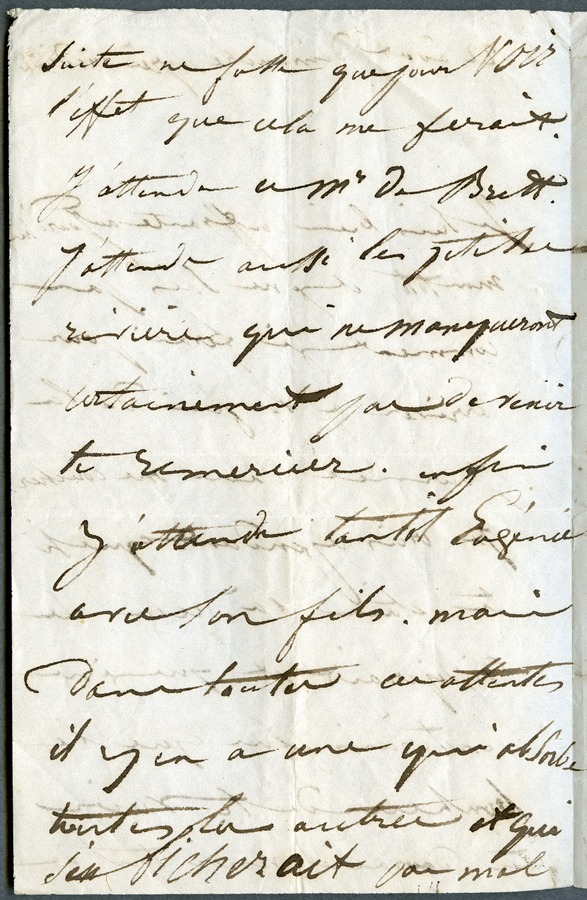 suite ne fasse que pour voir
l'effet que cela me ferait.
J'attends ce Mr de Brett.
J'attends aussi les petites
rivière qui ne manqueront
certainement pas de venir
te remercier. enfin
J'attends tantôt Eugénie
avec son fils. mais
Dans toutes ces attentes
il y en a une qui absorbe
toutes les autres et qui
s'en ficherait pas mal